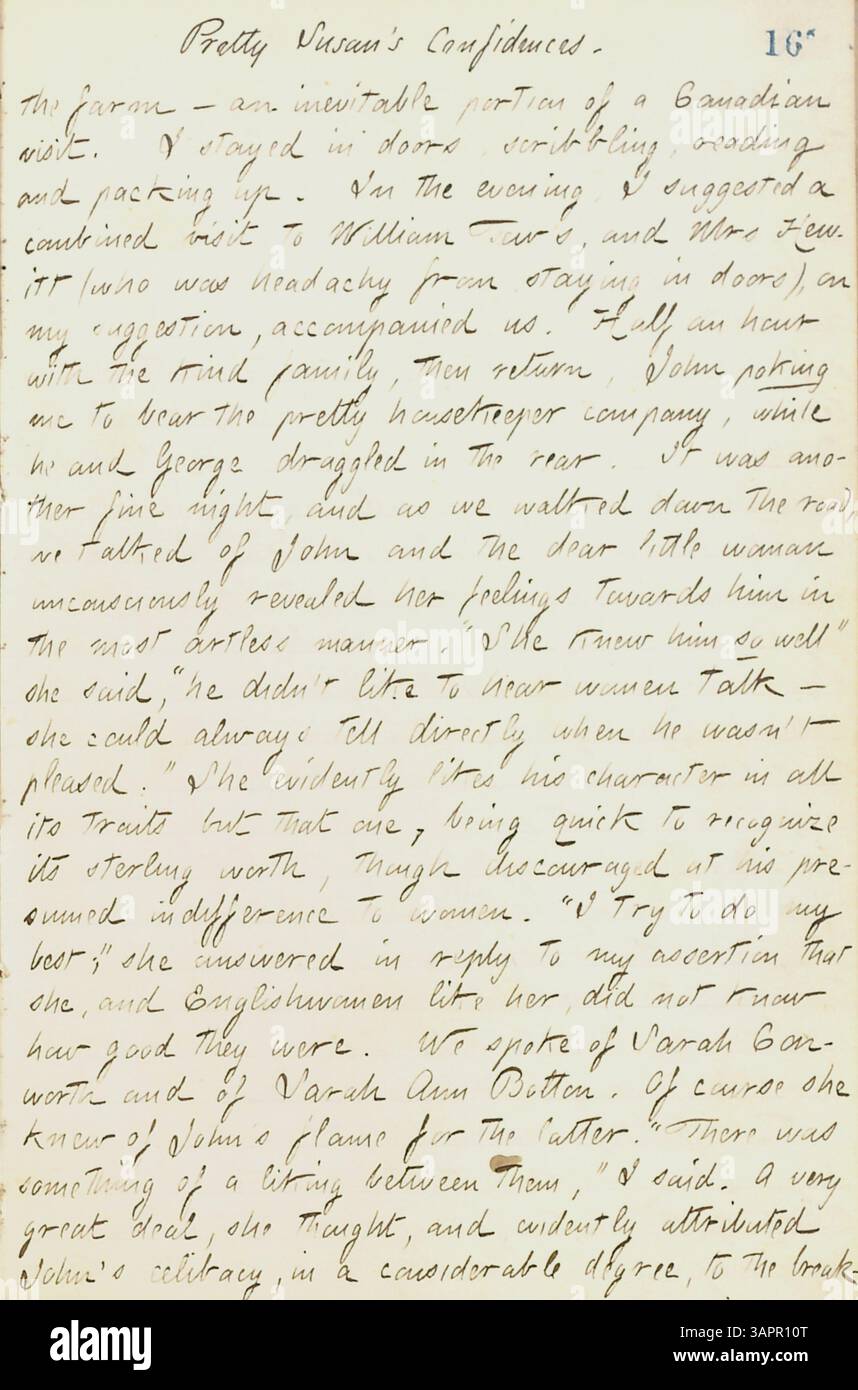 Pretty Susan's Confidences.
16
the farm — an inevitable portion of a Canadian
visit. I stayed in doors, scribbling, reading
and packing up. In the evening, I suggested a
combined visit to William Tew's, and Mrs Hew-
itt (who was headachy from staying in doors), on
my suggestion, accompanied us. Half an hour
with the kind family, then return, John poking
me to bear the pretty housekeeper company, while
he and George draggled in the rear. It was ano-
ther fine night, and as we walked down the road,
we talked of John and the dear little woman
unconsciously revealed her feelings towards him in
the most artless manner. "She knew him so well"
she said, "he didn't like to hear women talk —
she could always tell directly when he wasn't
pleased." She evidently likes his character in all
its traits but that one, being quick to recognize
its sterling worth, though discouraged at his pre-
sumed indifference to women. "I try to do my
best;" she answered in reply to my assertion that
she, and Englishwomen like her, did not know
how good they were. We spoke of Sarah Con-
worth and of Sarah Ann Bolton. Of course she
knew of John's flame for the latter. "There was
something of a liking between them," I said. A very
great deal, she thought, and evidently attributed
John's celibacy, in a considerable degree, to the break-
alamy
Image ID: 3APR10T
www.alamy.com